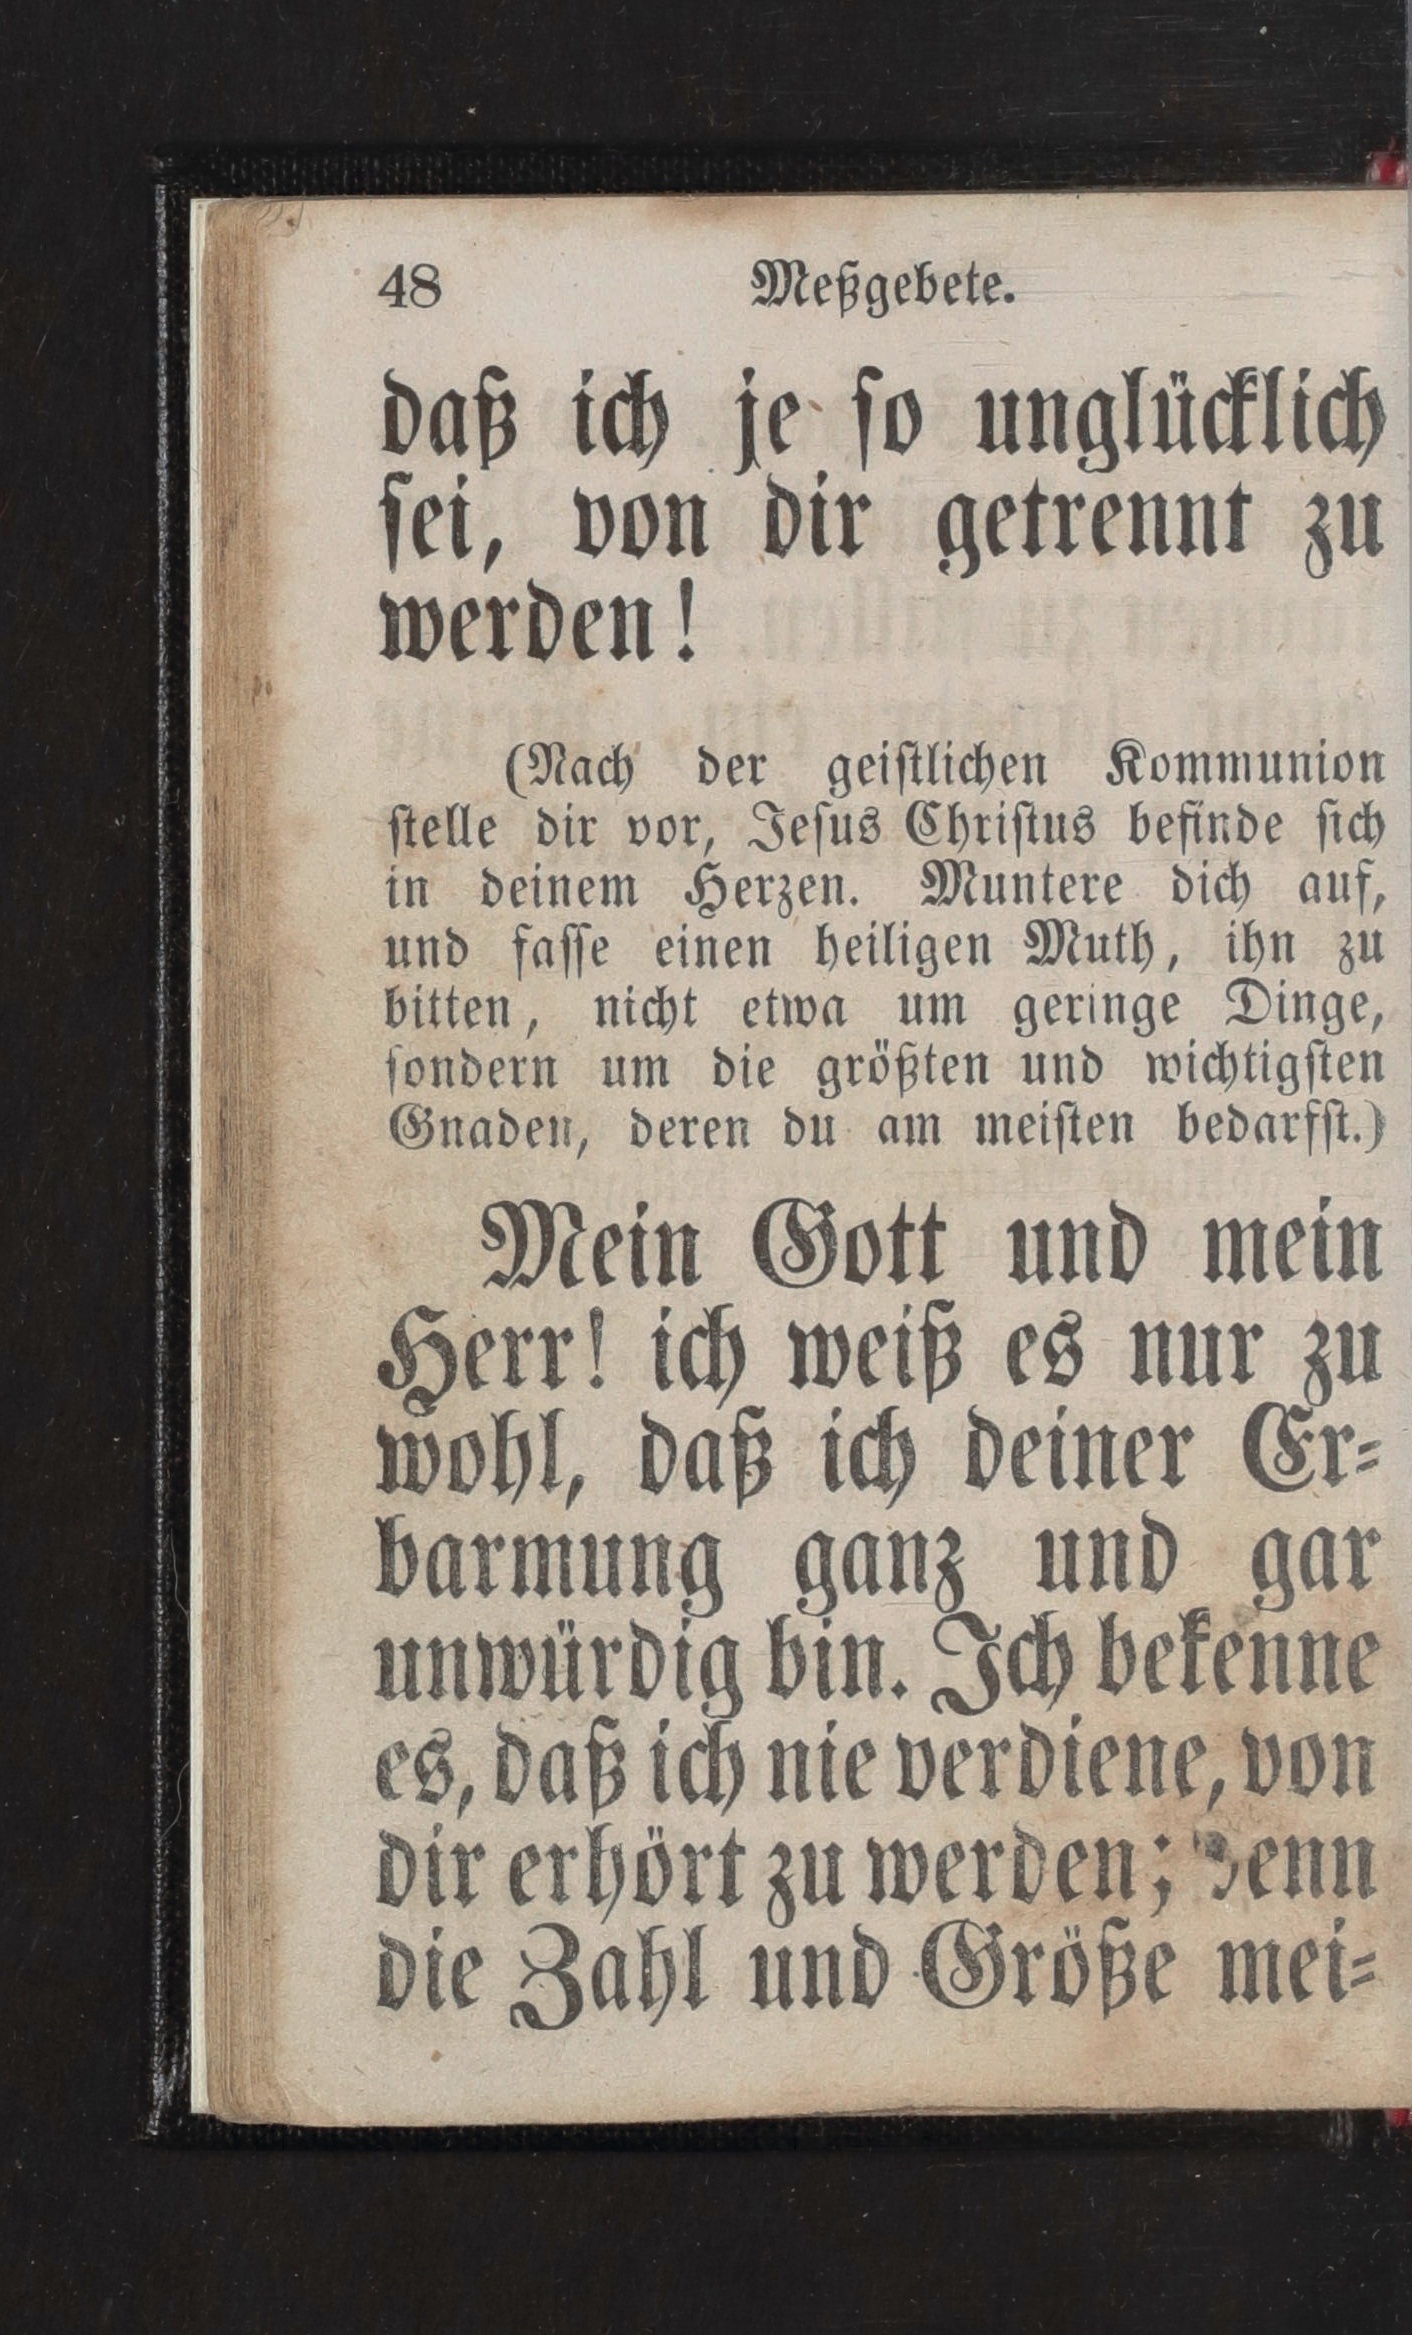 48 Meßgebete.
daß ich je so unglücklich
sei, von dir getrennt zu
werden!
(Nach der geistlichen Kommunion
stelle dir vor, Jesus Christus befinde sich
in deinem Herzen. Muntere dich auf,
und fasse einen heiligen Muth, ihn zu
bitten, nicht etwa um geringe Dinge,
sondern um die größten und wichtigsten
Gnaden, deren du am meisten bedarfst.)
Mein Gott und mein
Herr! ich weiß es nur zu
wohl, daß ich deiner Er-
barmung ganz und gar
unwürdig bin. Ich bekenne
es, daß ich nie verdiene, von
dir erhört zu werden; denn
die Zahl und Größe mei-